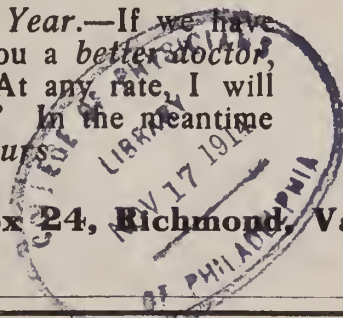 Year.—If we have
ou a better doctor,
At any rate, I will
In the meantime
urs
x 24, Richmond, Va
COLLEGE OF PHYSICIANS
LIBRARY
NOV 17 191
OF PHILADELPHIA